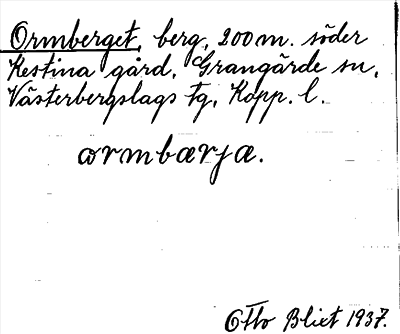 Ormberget, berg, 200 m. söder
Kestina gård, Grangärde sn,
Västerbergslags tg, Kopp. l.
ormbærja.
Otto Blixt 1937.